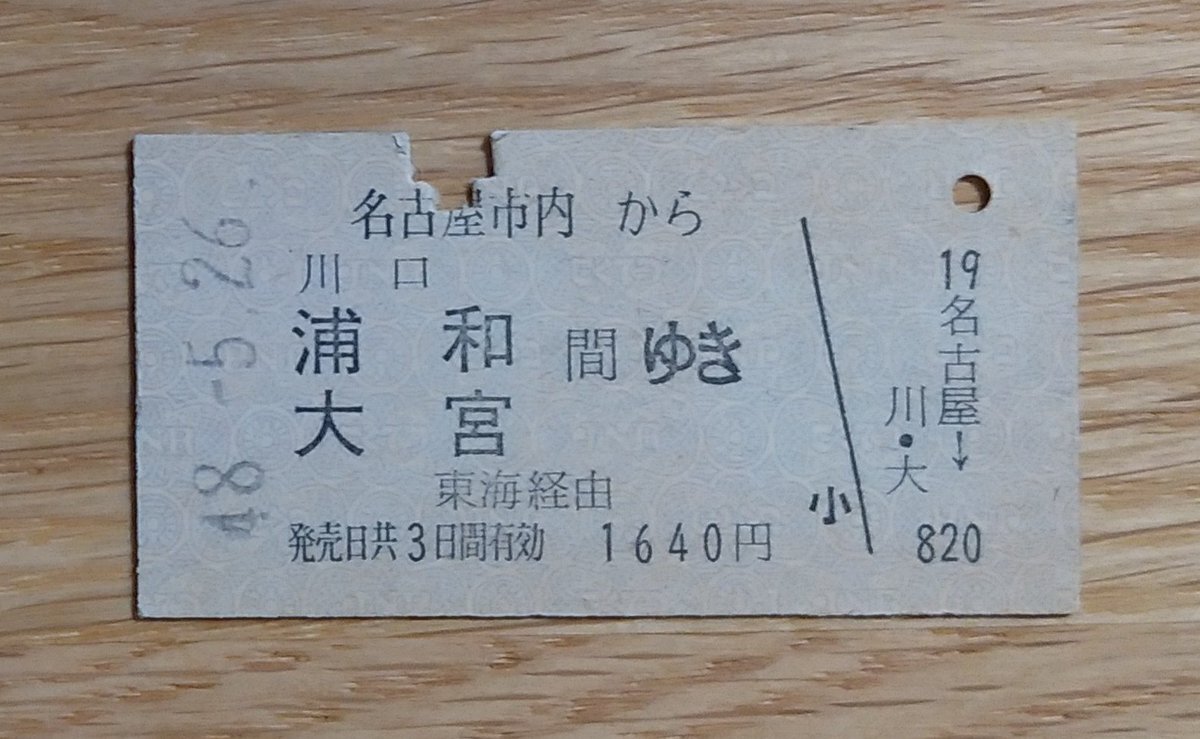 48.-5.26.
名古屋市内 から
川口
浦和 間 ゆき
大宮
東海経由
発売日共3日間有効 1640円
小
19名古屋→
川・大
820